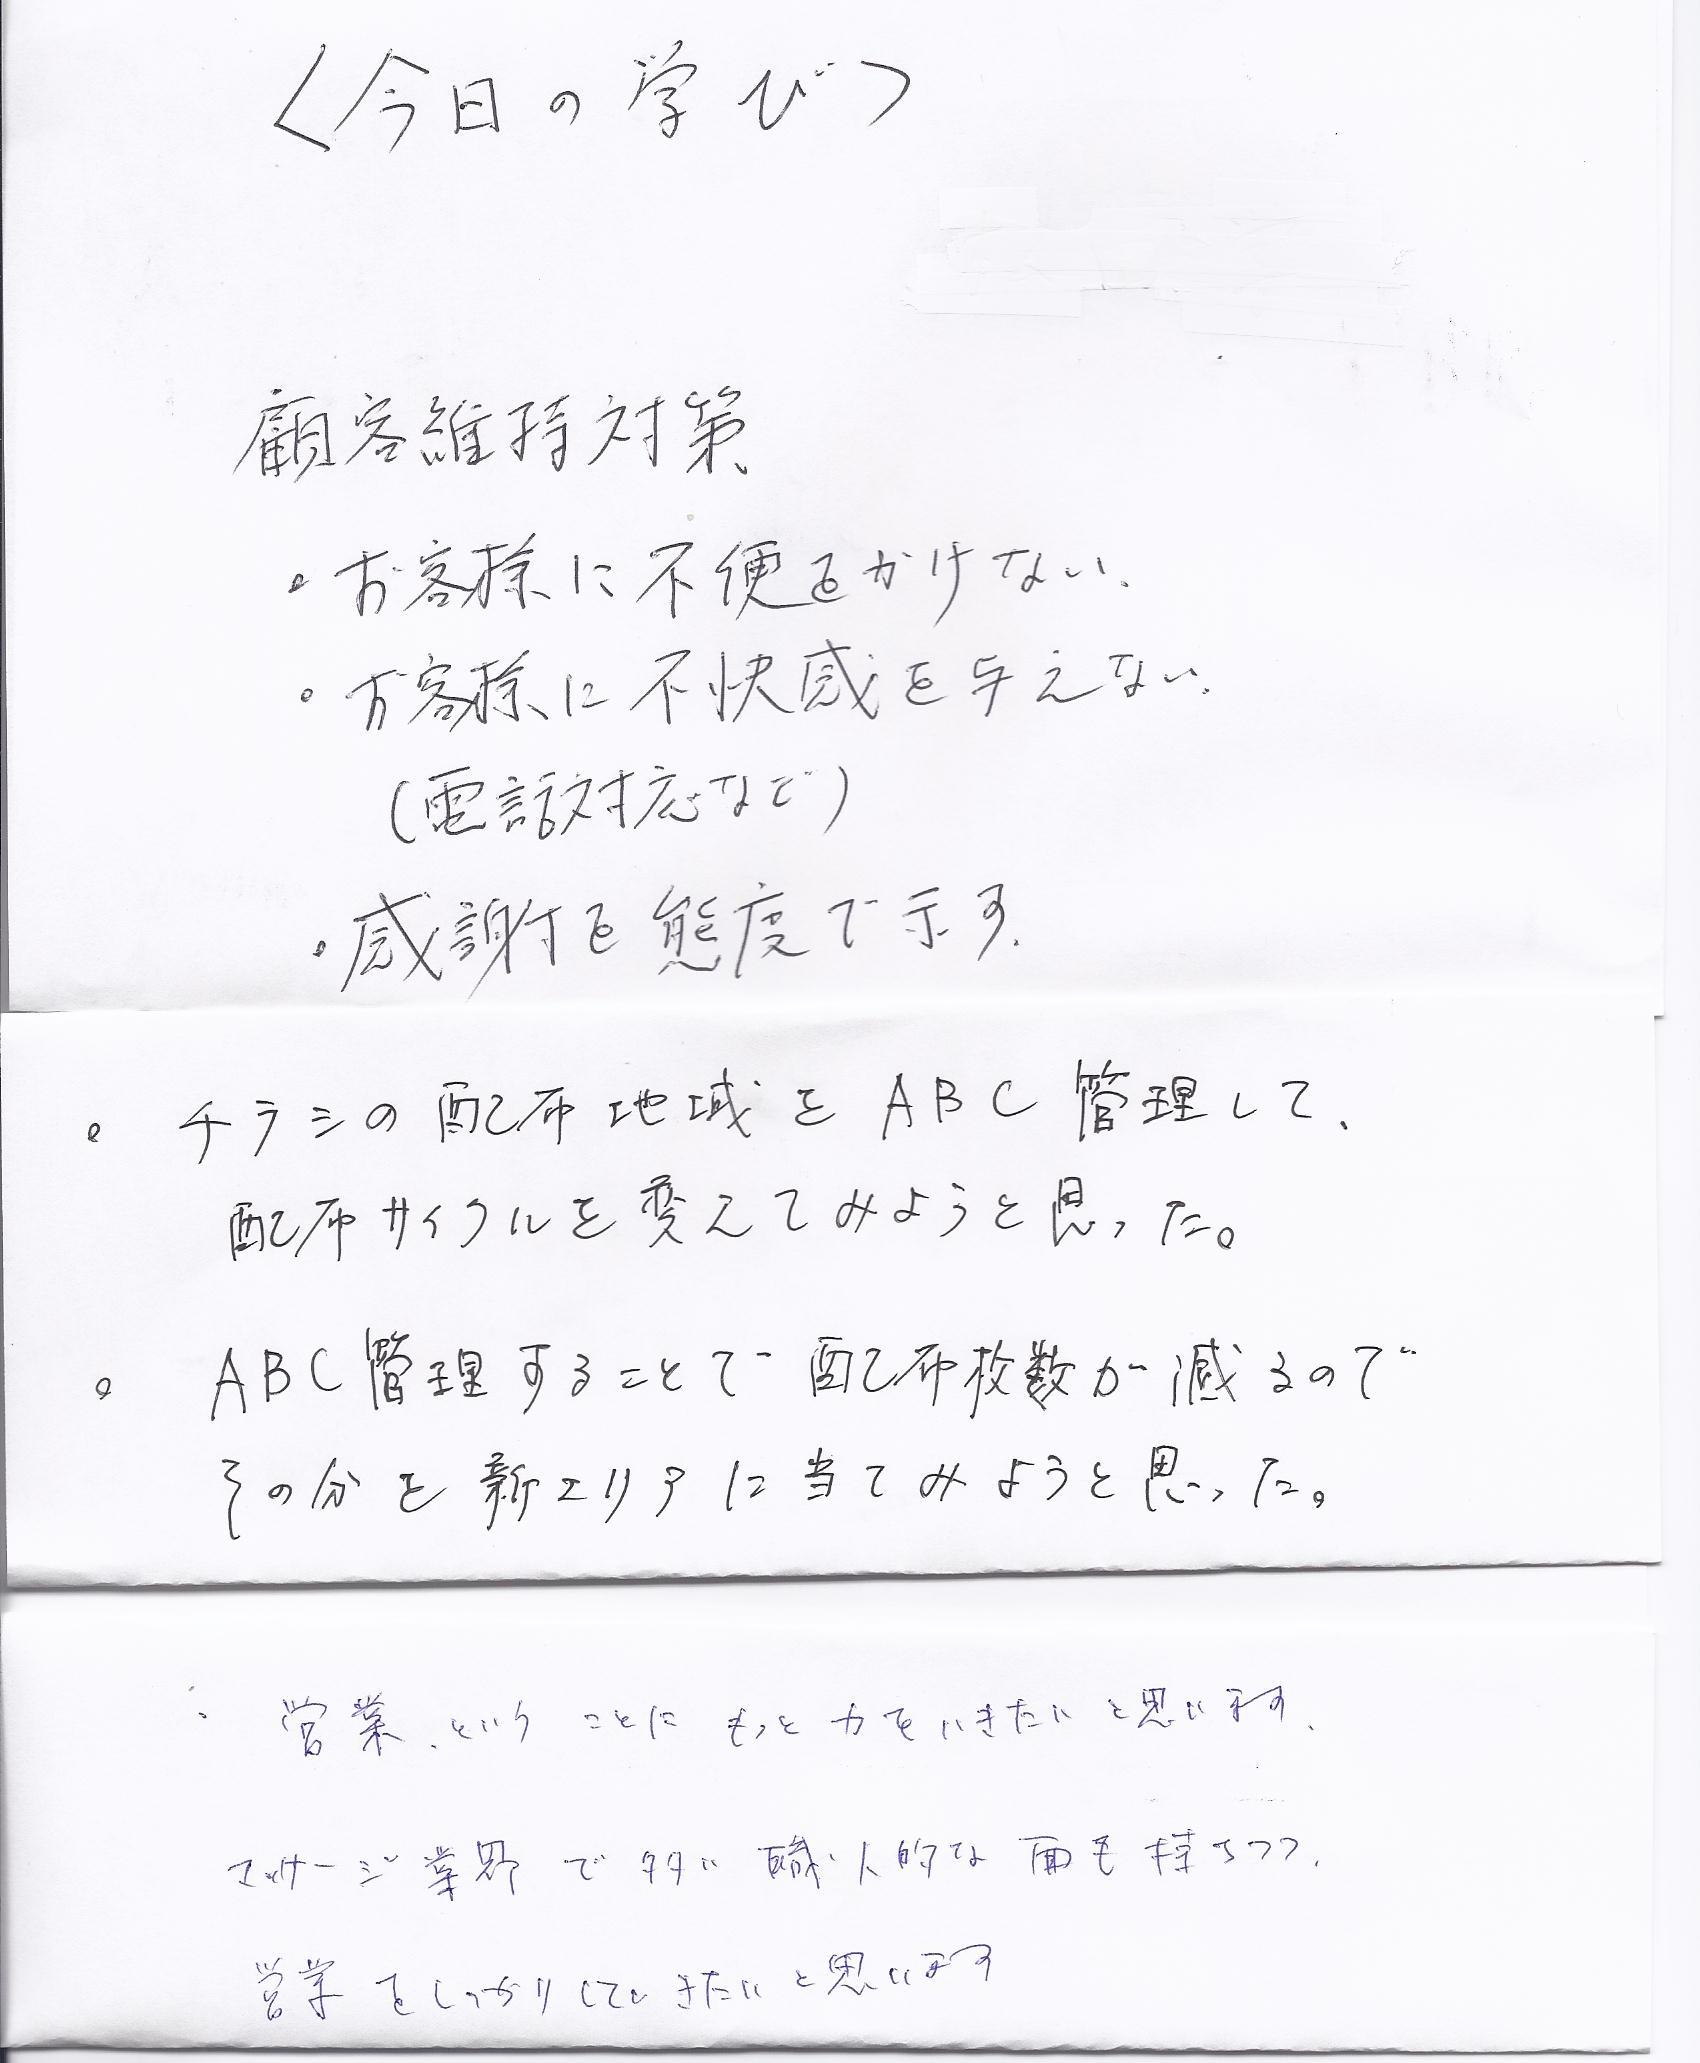 〈今日の学び〉
顧客維持対策
・お客様に不便をかけない。
・お客様に不快感を与えない。
(電話対応など)
・感謝を態度で示す。
・チラシの配布地域をABC管理して、
配布サイクルを変えてみようと思った。
・ABC管理することで配布枚数が減るので
その分を新エリアに当てみようと思った。
・営業、ということにもっと力をいきたいと思います。
マッサージ業界で多い職人的な面も持ちつつ、
営業をしっかりしていきたいと思います